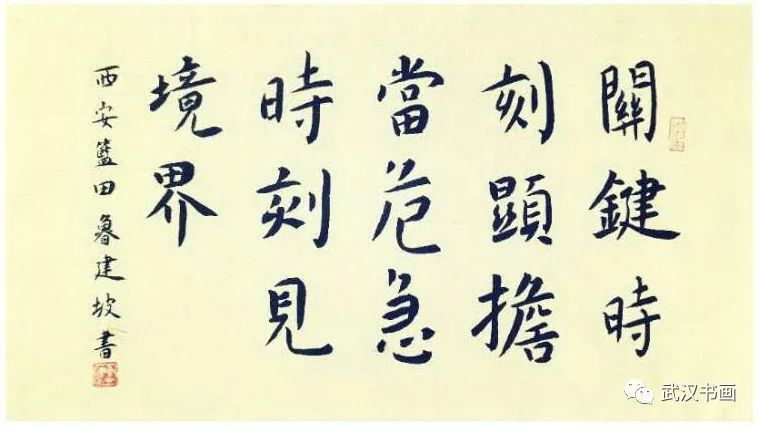 關鍵時
刻顯擔
當危急
時刻見
境界
西安籃田魯建坡書
武汉书画